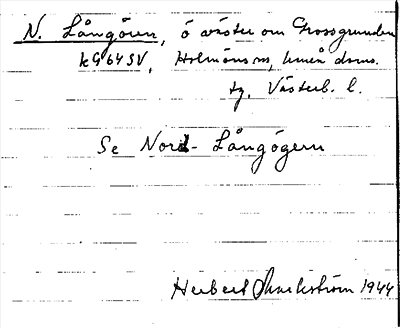 N. Långören, ö väster om Grossgrunden
kG64SV, Holmöns sn, Umeå doms.
tg, Västerb. l.
Se Nord-Långögern
Herbert 1944